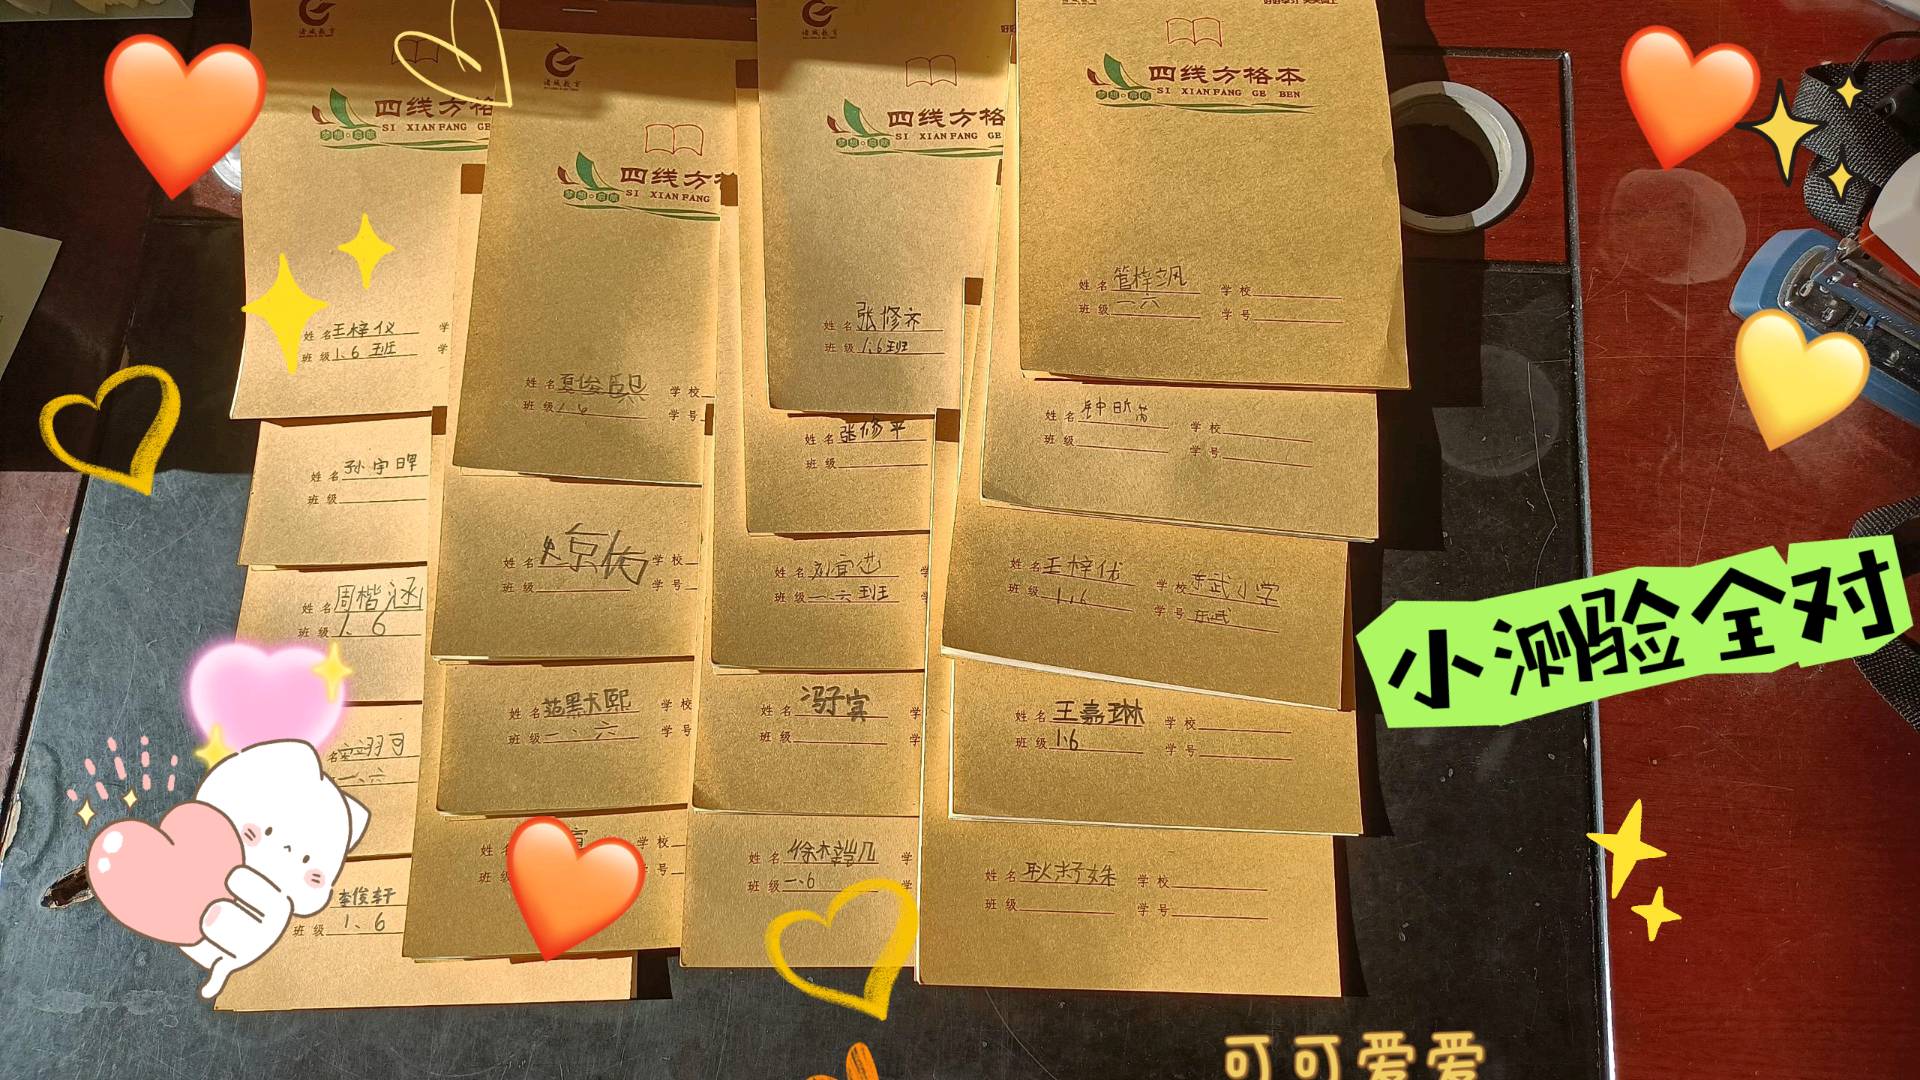 诸城教育
四线方格
SI XIAN FANG GE
梦想·启航
姓名 王梓仪 学
班级 1.6班 学
姓名 孙宇晔
班级
姓名 周楷涵
班级 1、6
名 翊可
一、六
李俊轩
班级 1、6
诸城教育
四线方格
SI XIAN FANG
梦想·启航
姓名 夏俊熙 学校
班级 1.6 学号
姓名 学校
班级 学号
姓名 范熙 学校
班级 一、六 学号
姓名 学校
班级 号
诸城教育
四线方格
SI XIAN FANG GE
梦想·启航
姓名 张修齐
班级 1.6班
姓名 张修平
班级
姓名 刘 学
班级 一.六班 学
姓名 冯子宾 学
班级 学
姓名 徐 学
班级 一、6 学
四线方格本
SI XIAN FANG GE BEN
梦想·启航
姓名 管梓飒 学校
班级 一六 学号
姓名 钟 学校
班级 学号
姓名 王梓优 学校 东武小学
班级 1.6 学号 东武
姓名 王嘉琳 学校
班级 1.6 学号
姓名 耿籽姝 学校
班级 学号
小测验全对
可可爱爱